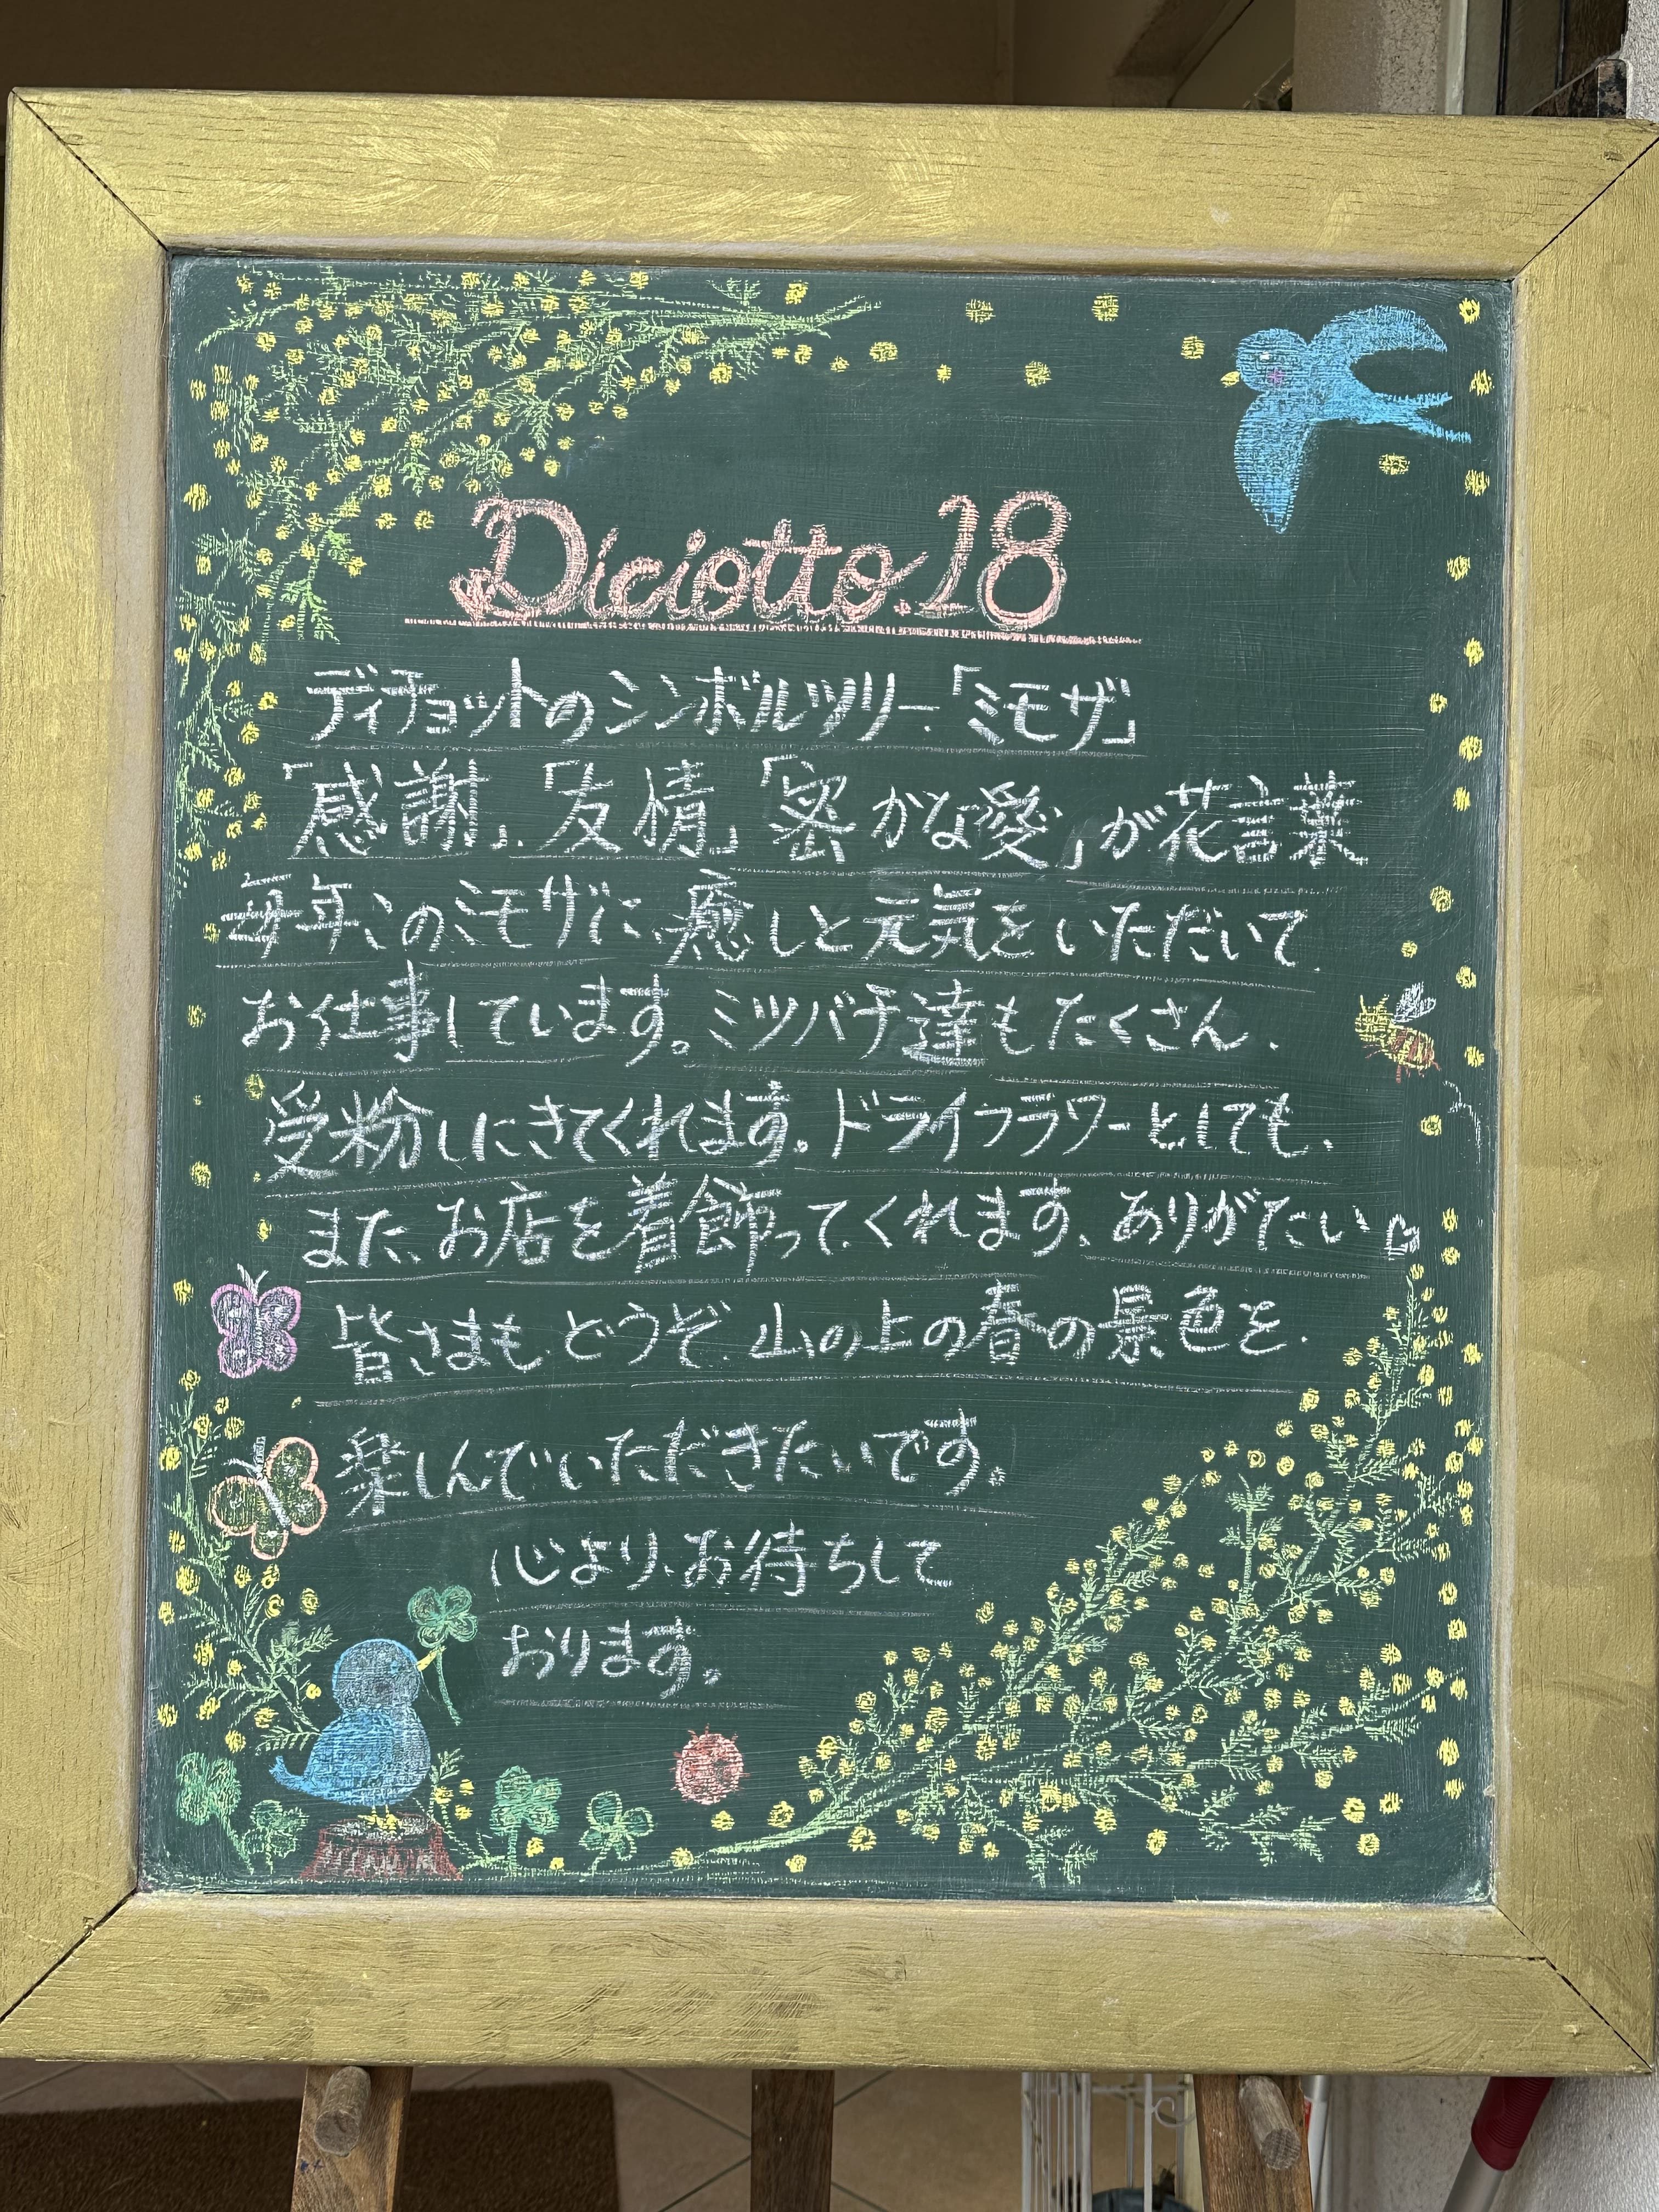 Diciotto.18
ディチョットのシンボルツリー「ミモザ」
「感謝」、「友情」「密かな愛」が花言葉
毎年、このミモザに、癒しと元気をいただいて
お仕事しています。ミツバチ達もたくさん、
受粉しにきてくれます。ドライフラワーとしても、
また、お店を着飾ってくれます、ありがたい♡
皆さまも、どうぞ、山の上の春の景色を、
楽しんでいただきたいです。
心より、お待ちして
おります。